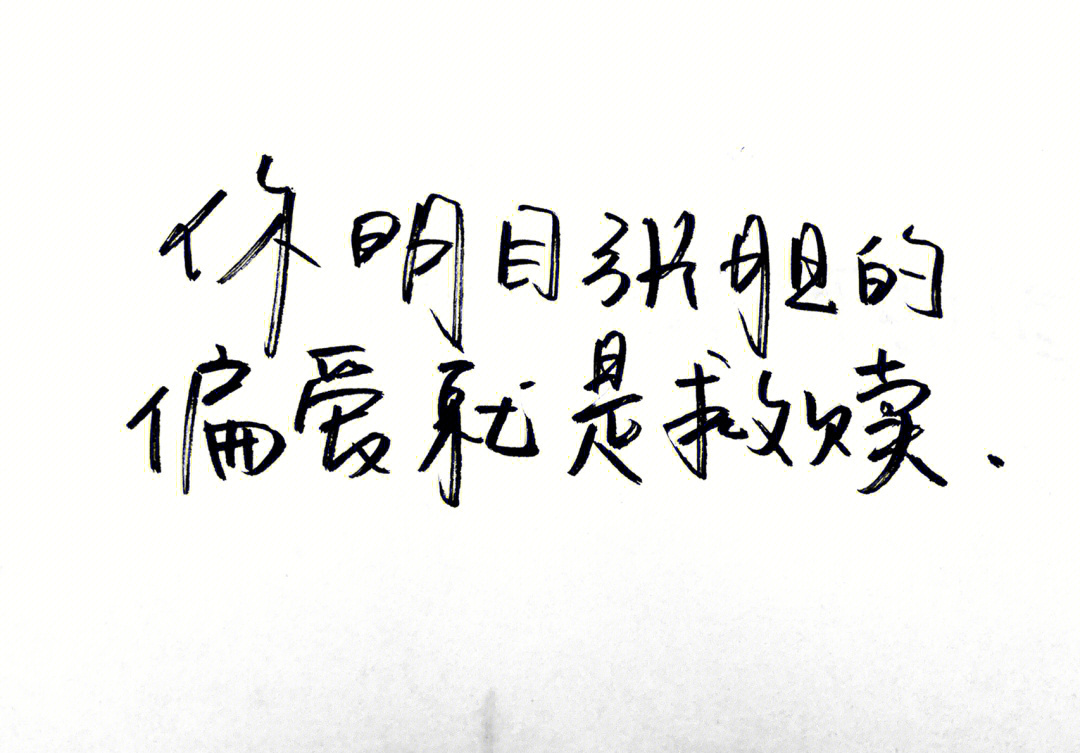 你明目张胆的
偏爱就是救赎.